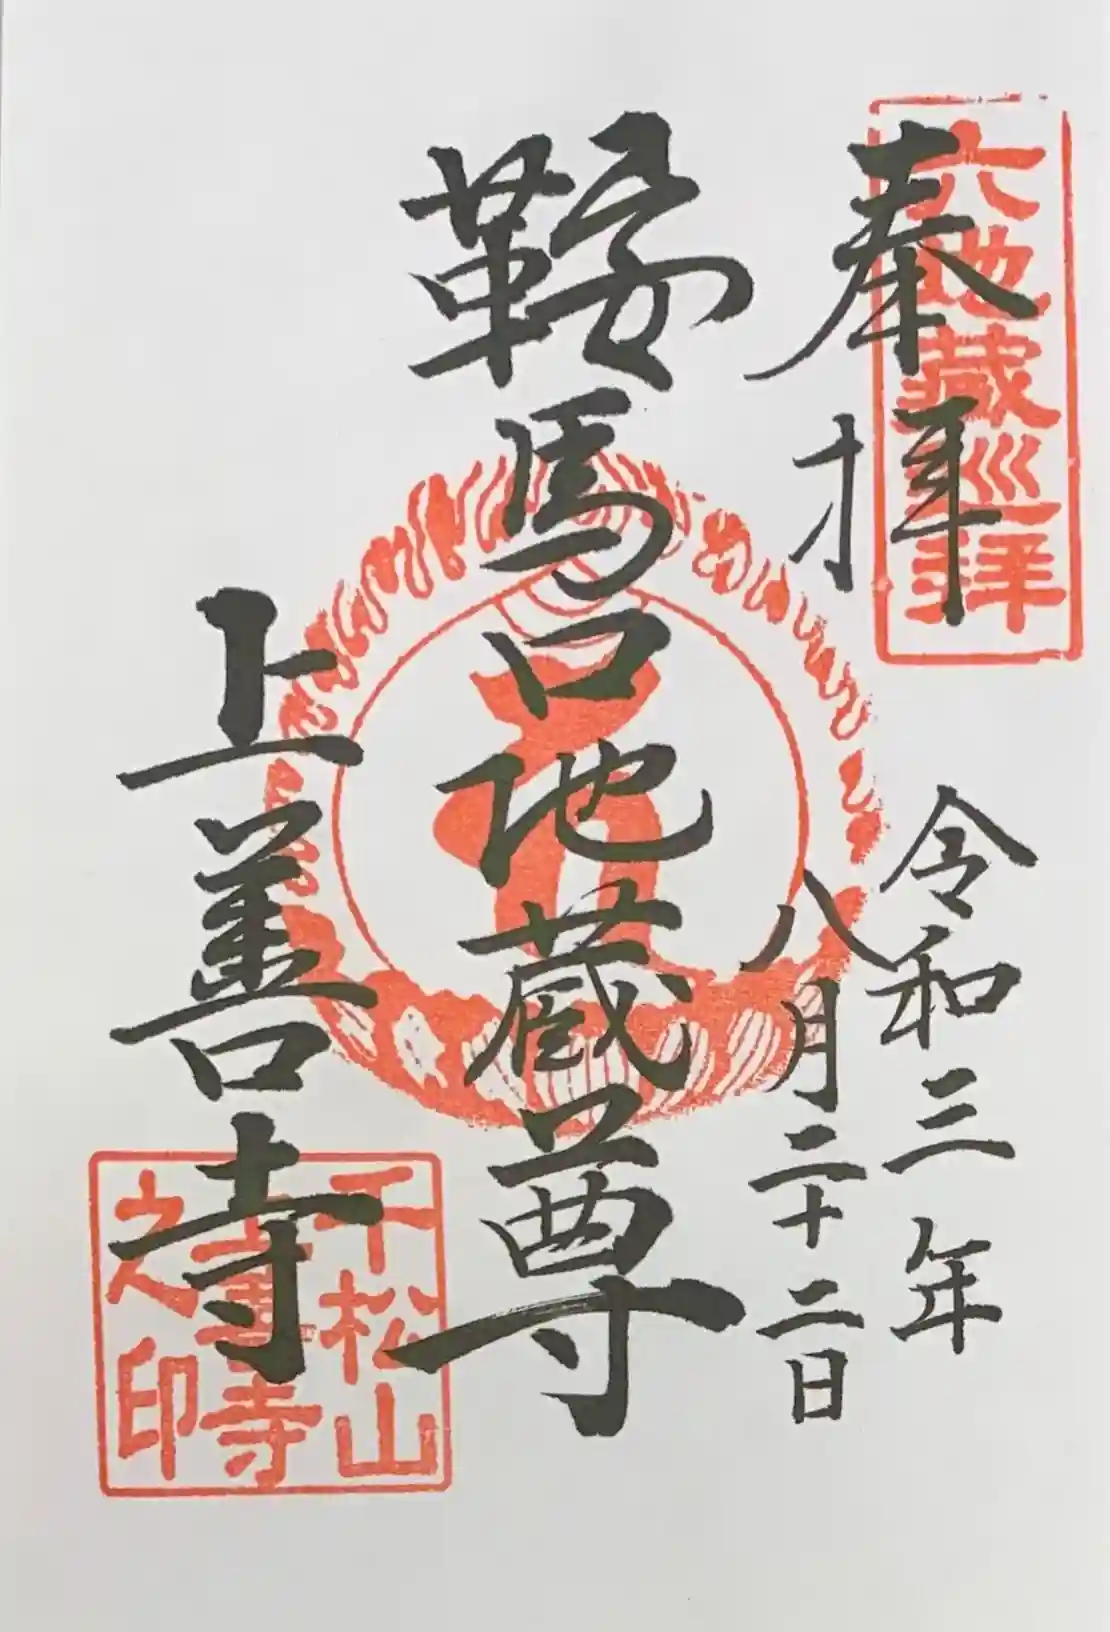 六地蔵巡拝
奉拝
令和三年
八月二十二日
鞍馬口地蔵尊
上善寺
千松山
上善寺
之印